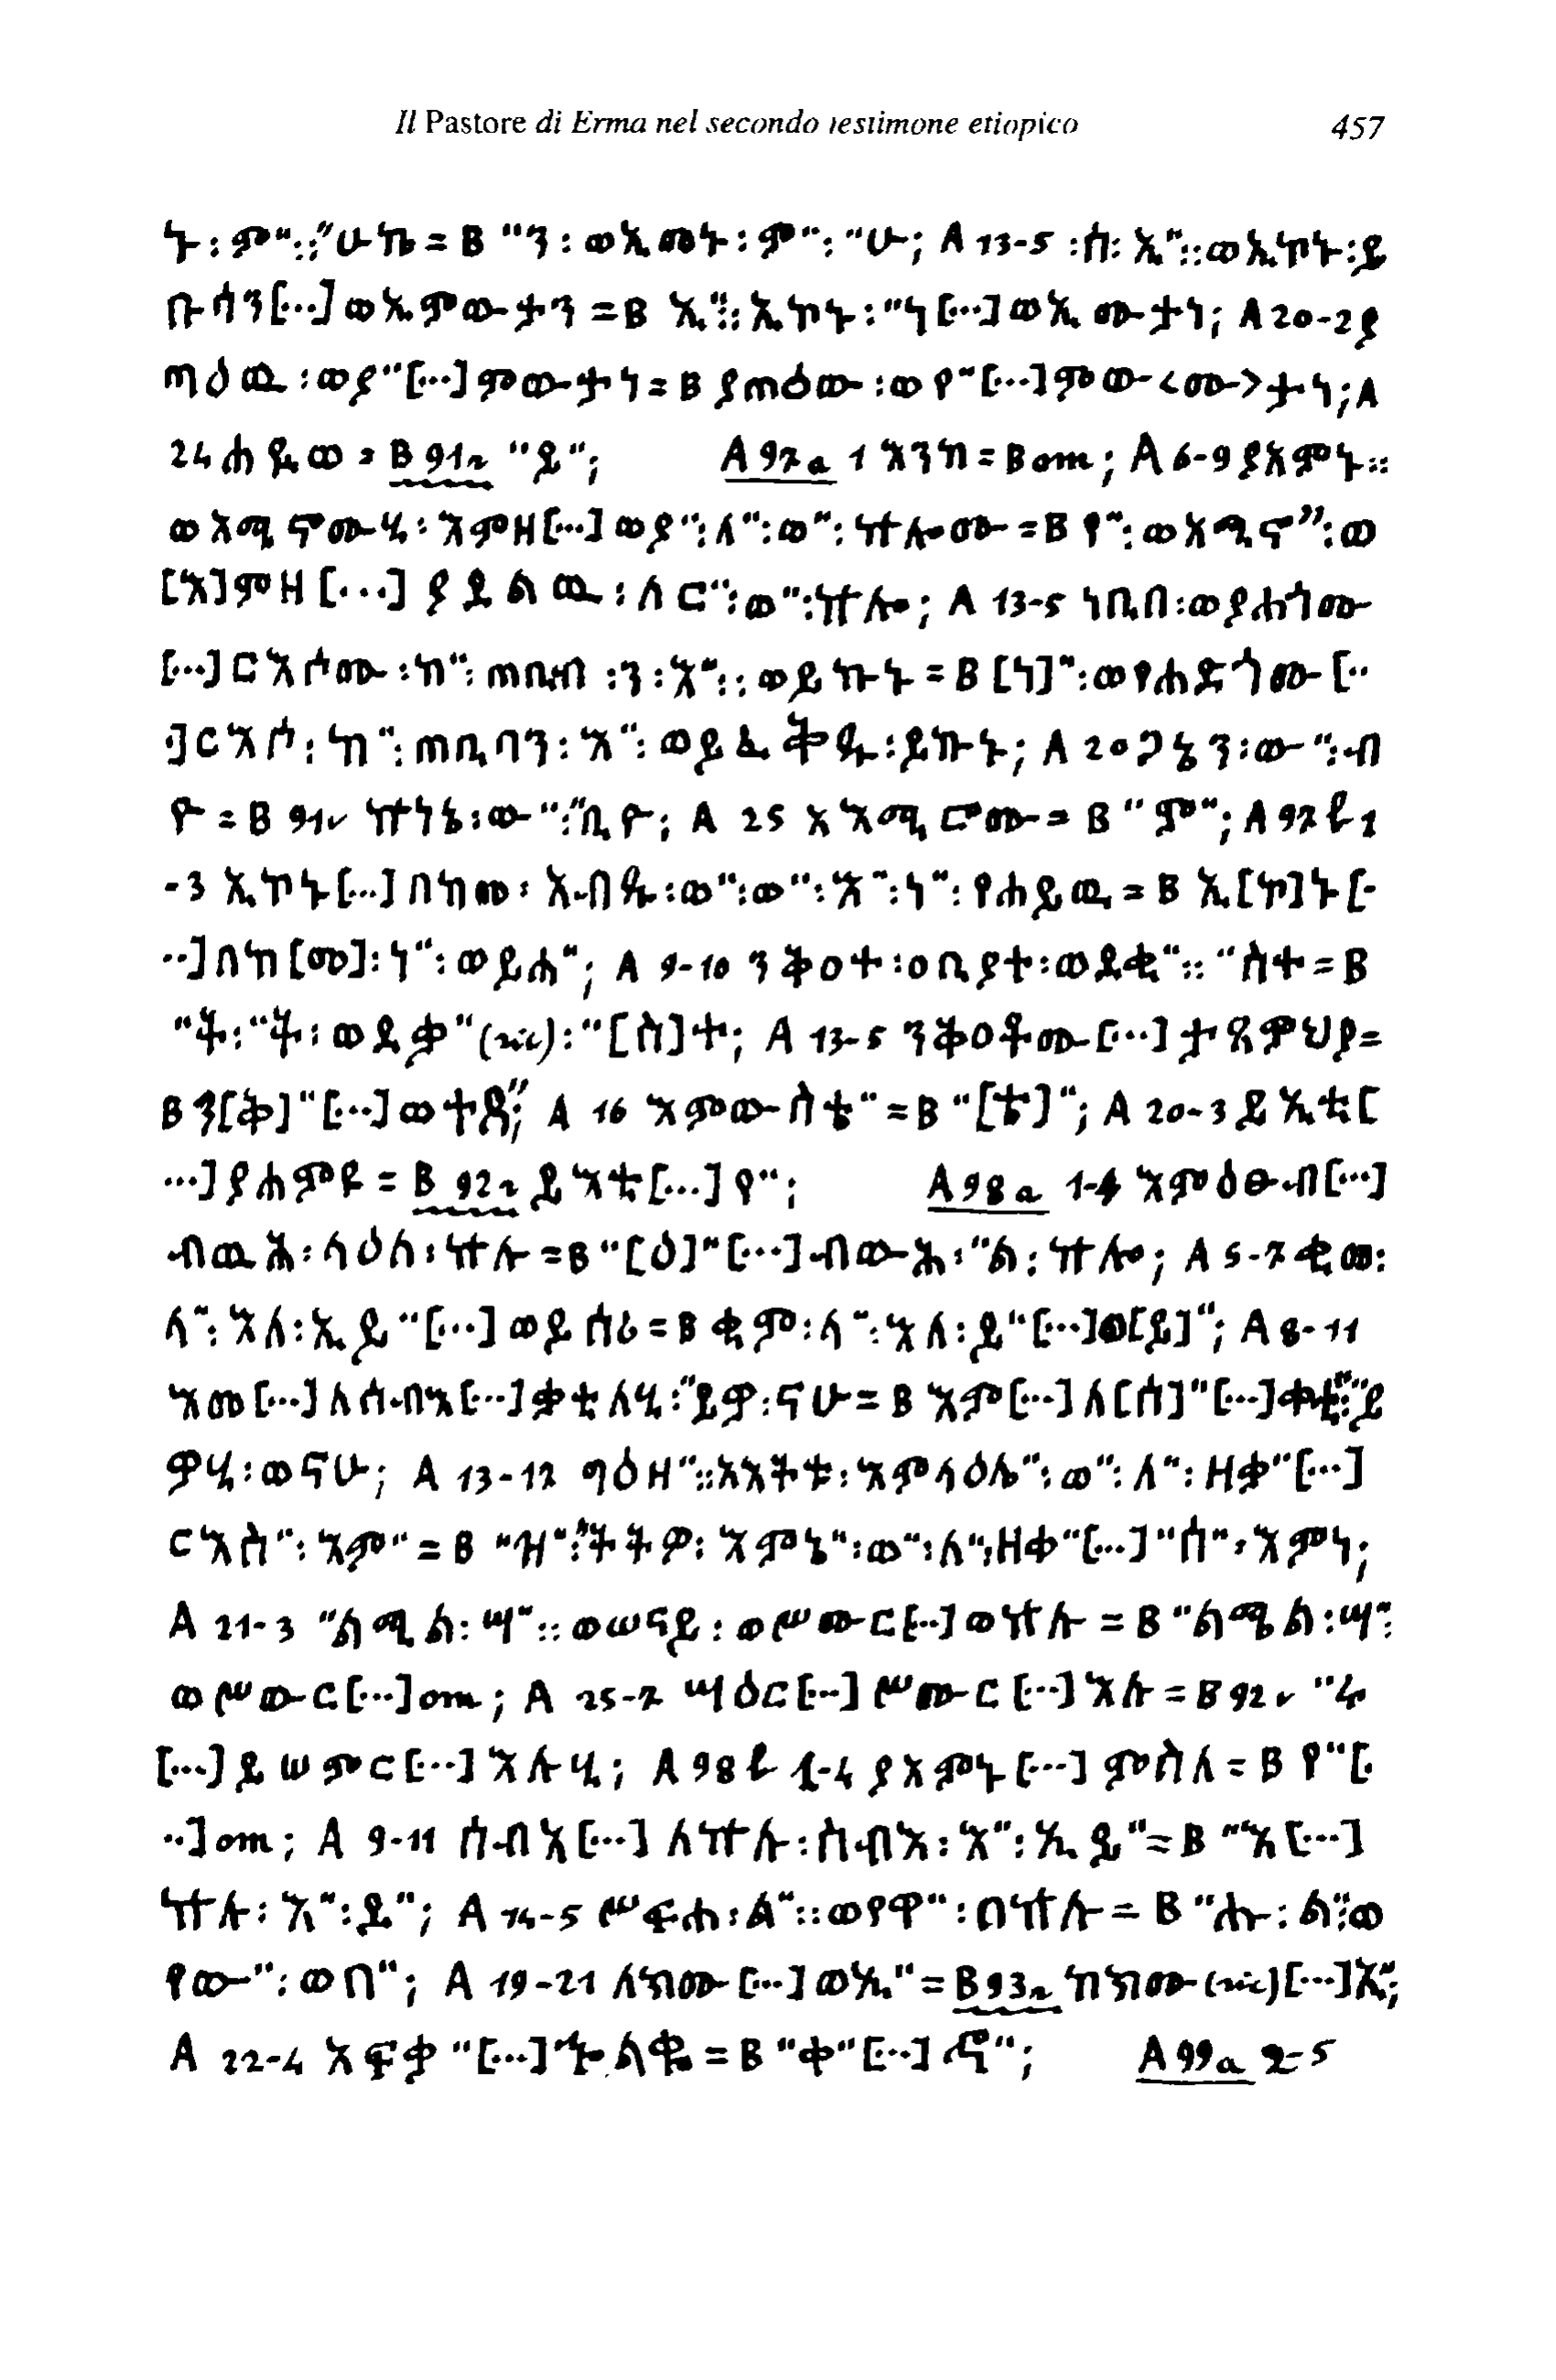 Il Pastore di Erma nel secondo testimone etiopico 457
ኑ፡ም"፡፡"ሁኬ = B "ን፡ወኢመኑ፡ም"፡"ሁ; A 13-5 ፡ሰ፡ ኢ"፡፡ወኢኮኑ፡ይ
ቡሳን[...]ወኢምውታን = B ኢ"፡፡ኢኮኑ፡"ነ[...]ወኢሙታነ; A 20-2 ያ
ጠዕዉ፡ወያ"[...]ምውታነ = B ያጠዕው፡ወየ"[...]ምው<ሙ>ታነ; A
24 ሐዪወ = B 91r "ይ"; A 97a 1 እንከ = B om; A 6-9 ያአምኑ፡፡
ወእማኖሙሂ፡እምዘ[...]ወያ"፡ለ"፡ወ"፡ኵሎሙ = B የ"፡ወአሚኖ"፡ወ
[እ]ምዘ[...] ያደልዉ፡ለር"፡ወ"፡ኵሎ; A 13-5 ነቢበ፡ወያሐጎሙ
[...]ርእሶሙ፡ከ"፡ጠቢብ፡ን፡እ"፡፡ወይኩኑ = B [ነ]"፡ወየሐድጎሙ[..
.]ርእሶ፡ከ"፡ጠቢባን፡እ"፡ወይፈቅዱ፡ይኩኑ; A 20 ጋኔን፡ው"፡ብ
ዮ = B 91v ኵነኔ፡ው"፡"ቢዮ; A 25 አእማሮሙ = B "ም"; A 97b 1
-3 ኢኮኑ[...]በከመ፡ አብዱ፡ወ"፡ወ"፡እ"፡ነ"፡የሐይዉ = B ኢ[ኮ]ኑ[.
..]በከ[መ]፡ነ"፡ወይሐ"; A 9-10 ንቅዐተ፡ዐቢያተ፡ወደቂ"፡፡"ስተ = B
"ት፡"ት፡ወደቃ"(sic)፡"[ስ]ተ; A 13-5 ንቅዐቶሙ[...]
B ን[ቅ]"[...] A 16 እምውስቴ" = B "[ቴ]"; A 20-3 ይእቲ[
...]ያሐምዩ = B 92r ይእቲ[...]የ"; A 98a 1-4 እምዕፁብ[...]
ብዉሕ፡ላዕለ፡ኵሉ = B "[ዕ]"[...]ብውሕ፡"ል፡ኵሎ; A 5-7 ቂመ፡
ለ"፡እለ፡ኢይ"[...]ወይሰሪ = B ቂም፡ለ"፡እለ፡ይ"[...]ወ[ይ]"; A 8-11
እመ[...]ለሰብእ[...]
A 13-17
ርእስ"፡እም" = B
A 21-3 "ልሚል፡ሣ"፡፡ወሠናይ፡ወሥሙር[...]ወኵሉ = B "ልሜል፡ሣ"፡
ወሥውር[...]om; A 25-7 ሣዕር[...]ሥሙር[...]እሉ = B 92v "ሩ
[...]ይሠምር[...]እሉሂ; A 98b 1-4 ያአምኑ[...]ምስለ = B የ"[.
..]om; A 9-11 ሰብእ[...]ለኵሉ፡ሰብእ፡እ"፡ኢይ" = B "እ[...]
ኵሉ፡እ"፡ይ"; A 14-5 ሥፍሐ፡ል"፡፡ወየዋ"፡በኵሉ = B "ሑ፡ል"፡ወ
የው"፡ወበ"; A 19-21 ለክሙ[...]ወኢ" = B 93r ከክሙ(sic)[...]ኢ";
A 22-4 አፍቃ"[...] = B "ቀ"[...] A 99a 2-5